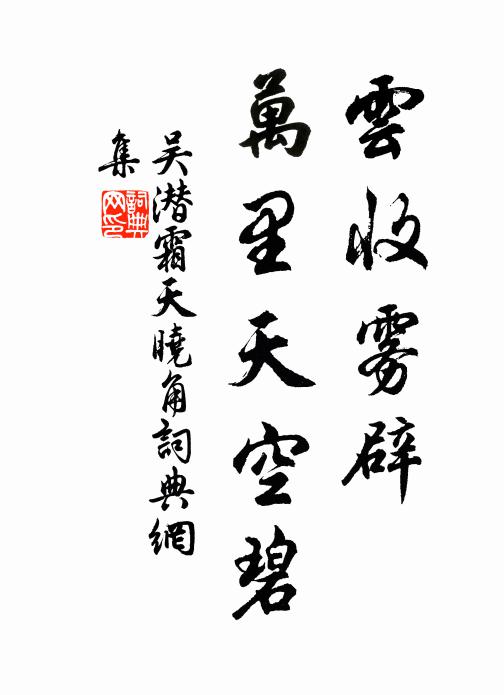 雲收雾辟
萬里天空碧
吴潜霜天曉角詞典網
集
詞典网印